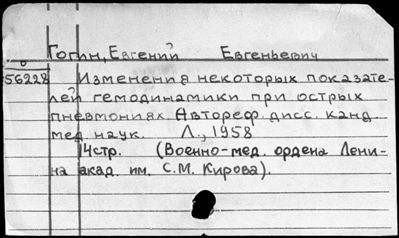 Гогин, Евгений Евгеньевич
56228 Изменения некоторых показате-
лей гемодинамики при острых
пневмониях. Автореф. дисс. канд.
мед. наук. Л., 1958
14стр. (Военно-мед. ордена Лени-
на акад. им. С.М. Кирова).